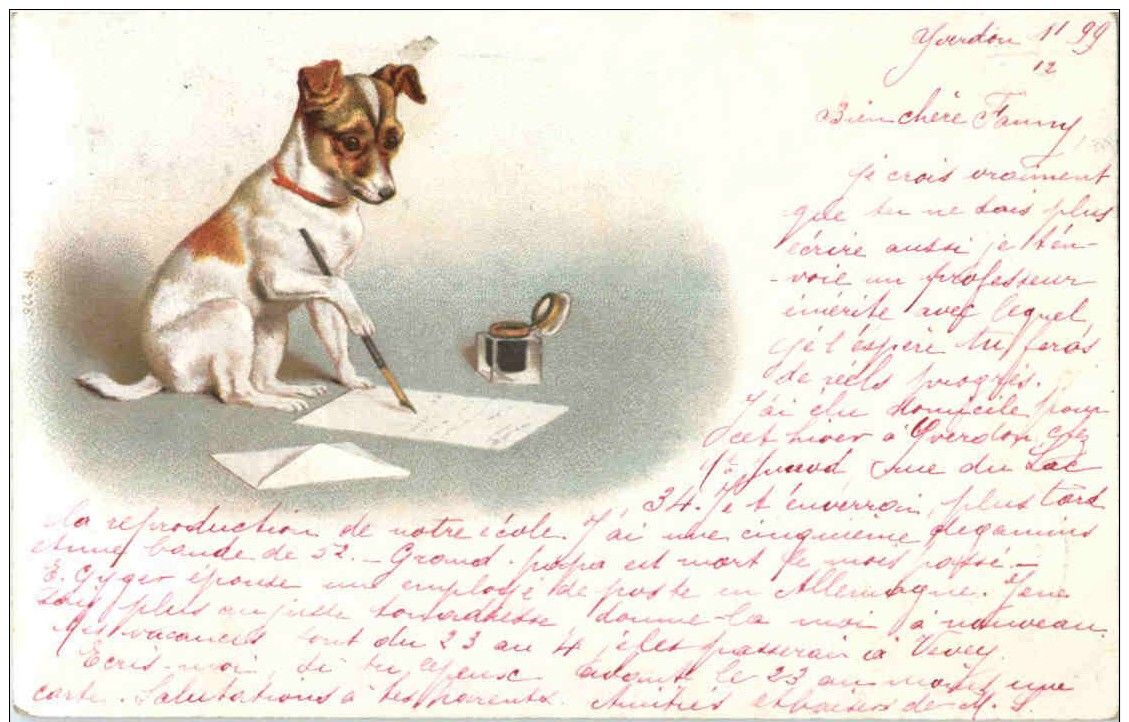 Yverdon 11 99
12
Bien chère Fanny,
je crois vraiment
que tu ne sais plus
écrire aussi je t'en-
-voie un professeur
émérite avec lequel
je l'éspère tu feras
de réels progrès.
J'ai élu domicile pour
cet hiver à Yverdon, chez
rue du Lac
34. Je t'enverrai, plus tard
la reproduction de notre école. J'ai une cinquième de gamins
bande de 52. - Grand-papa est mort le mois passé. -
E. Gyger épouse une employé de poste en Allemagne. Je ne
sais plus au juste ton adresse donne-la moi à nouveau.
Mes vacances sont du 23 au 4 je les passerai à Vevey.
Ecris-moi si tu peux avant le 23 au moins une
carte. Salutations à tes parents. Amitiés et baisers de M. S.
No. 226